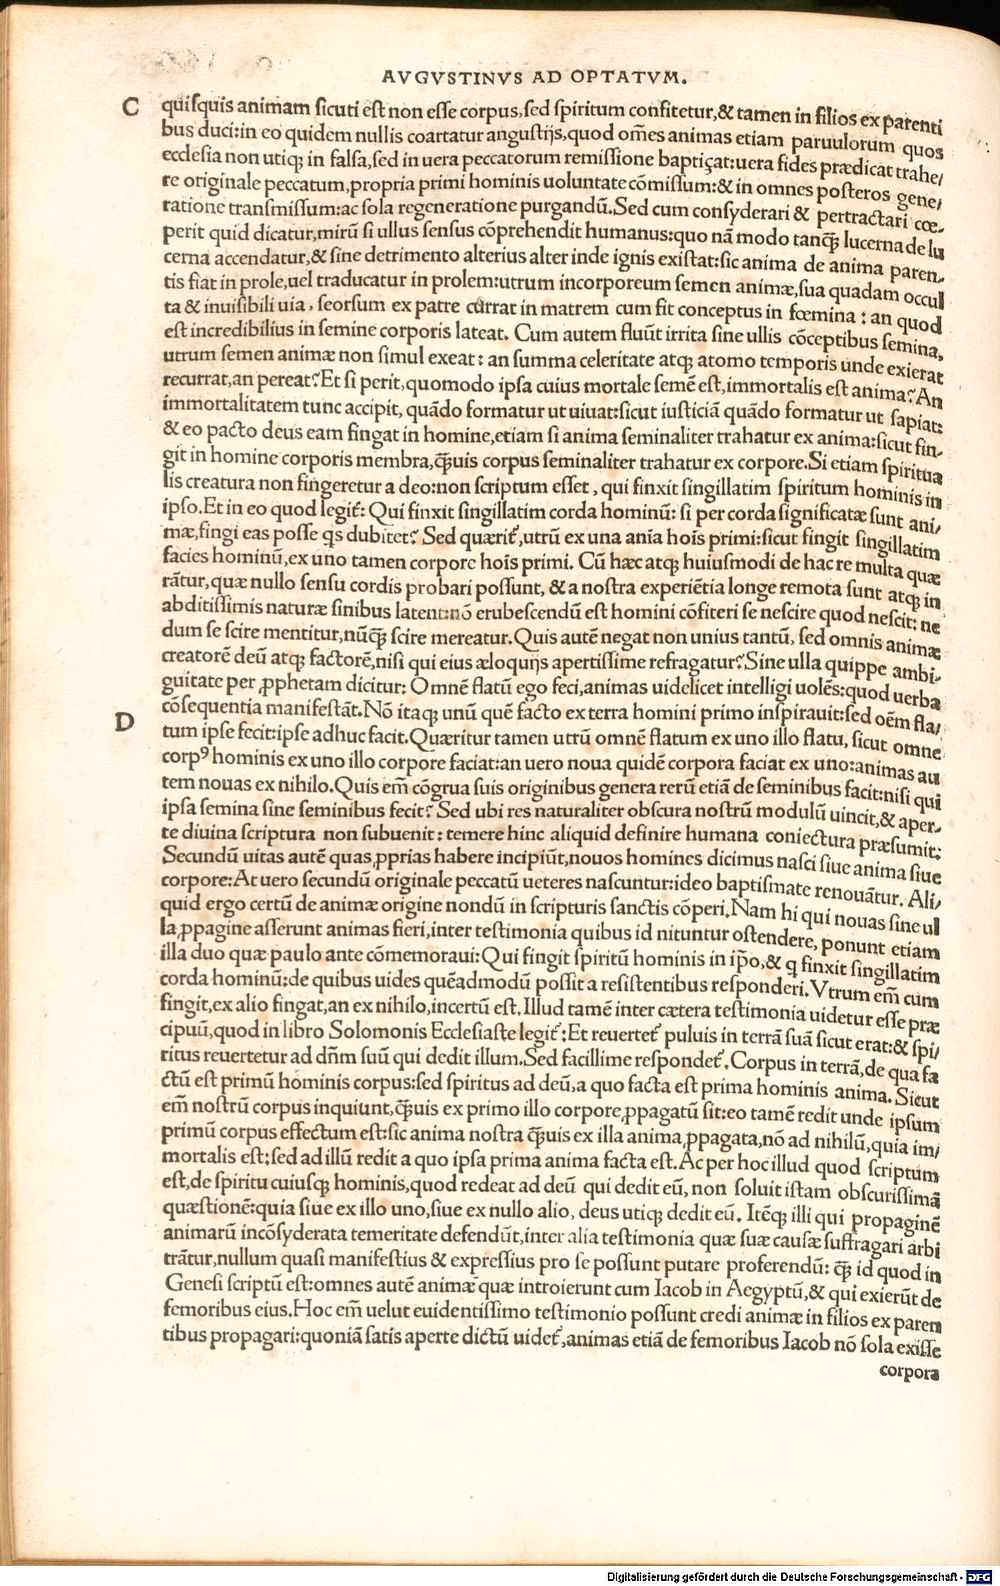 AVGVSTINVS AD OPTATVM.
C quiſquis animam ſicuti eſt non eſſe corpus,ſed ſpiritum confitetur,& tamen in filios ex parenti
bus duci:in eo quidem nullis coartatur anguſtijs,quod om̃es animas etiam paruulorum quos
eccleſia non utiqꝫ in falſa,ſed in uera peccatorum remiſſione baptiçat:uera fides prædicat trahe/
re originale peccatum,propria primi hominis uoluntate cõmiſſum:& in omnes poſteros gene/
ratione tranſmiſſum:ac ſola regeneratione purgandũ.Sed cum conſyderari & pertractari cœ-
perit quid dicatur,mirũ ſi ullus ſenſus cõprehendit humanus:quo nã modo tanq̃ꝫ lucerna de lu
cerna accendatur,& ſine detrimento alterius alter inde ignis exiſtat:ſic anima de anima paren-
tis fiat in prole,uel traducatur in prolem:utrum incorporeum ſemen animæ,ſua quadam occul
ta & inuiſibili uia, ſeorſum ex patre currat in matrem cum fit conceptus in fœmina : an quod
eſt incredibilius in ſemine corporis lateat. Cum autem fluũt irrita ſine ullis cõceptibus ſemina,
utrum ſemen animæ non ſimul exeat: an ſumma celeritate atqꝫ atomo temporis unde exierat
recurrat,an pereat?Et ſi perit,quomodo ipſa cuius mortale ſemẽ eſt,immortalis eſt anima?An
immortalitatem tunc accipit, quãdo formatur ut uiuat:ſicut iuſticiã quãdo formatur ut ſapiat:
& eo pacto deus eam fingat in homine,etiam ſi anima ſeminaliter trahatur ex anima:ſicut fin-
git in homine corporis membra,q̃ꝫuis corpus ſeminaliter trahatur ex corpore.Si etiam ſpiritua
lis creatura non fingeretur a deo:non ſcriptum eſſet, qui finxit ſingillatim ſpiritum hominis in
ipſo.Et in eo quod legit᷑: Qui finxit ſingillatim corda hominũ: ſi per corda ſignificatæ ſunt ani/
mæ,fingi eas poſſe q̃s dubitet? Sed quærit᷑,utrũ ex una aĩa hoĩs primi:ſicut fingit ſingillatim
facies hominũ,ex uno tamen corpore hoĩs primi. Cũ hæc atqꝫ huiuſmodi de hac re multa quæ
rãtur,quæ nullo ſenſu cordis probari poſſunt, & a noſtra experiẽtia longe remota ſunt atqꝫ in
abditiſſimis naturæ ſinibus latent:nõ erubeſcendũ eſt homini cõfiteri ſe neſcire quod neſcit: ne
dum ſe ſcire mentitur,nũq̃ꝫ ſcire mereatur.Quis autẽ negat non unius tantũ, ſed omnis animæ
creatorẽ deũ atqꝫ factorẽ,niſi qui eius æloquijs apertiſſime refragatur?Sine ulla quippe ambi-
guitate per ꝓphetam dicitur: Omnẽ flatũ ego feci,animas uidelicet intelligi uolẽs:quod uerba
cõſequentia manifeſtãt.Nõ itaqꝫ unũ quẽ facto ex terra homini primo inſpirauit:ſed oẽm fla/
D tum ipſe fecit:ipſe adhuc facit.Quæritur tamen utrũ omnẽ flatum ex uno illo flatu, ſicut omne
corpꝰ hominis ex uno illo corpore faciat:an uero noua quidẽ corpora faciat ex uno:animas au
tem nouas ex nihilo.Quis em̃ cõgrua ſuis originibus genera rerũ etiã de ſeminibus facit:niſi qui
ipſa ſemina ſine ſeminibus fecit? Sed ubi res naturaliter obſcura noſtrũ modulũ uincit,& aper-
te diuina ſcriptura non ſubuenit: temere hinc aliquid definire humana coniectura præſumit:
Secundũ uitas autẽ quas,ꝓprias habere incipiũt,nouos homines dicimus naſci ſiue anima ſiue
corpore:At uero ſecundũ originale peccatũ ueteres naſcuntur:ideo baptiſmate renouãtur. Ali/
quid ergo certũ de animæ origine nondũ in ſcripturis ſanctis cõperi.Nam hi qui nouas ſine ul
la ꝓpagine aſſerunt animas fieri,inter teſtimonia quibus id nituntur oſtendere, ponunt etiam
illa duo quæ paulo ante cõmemoraui:Qui fingit ſpiritũ hominis in ip̃o,& q finxit ſingillatim
corda hominũ:de quibus uides quẽadmodũ poſſit a reſiſtentibus reſponderi. Vtrum em̃ cum
fingit,ex alio fingat,an ex nihilo,incertũ eſt. Illud tamẽ inter cætera teſtimonia uidetur eſſe præ
cipuũ,quod in libro Solomonis Eccleſiaſte legit᷑:Et reuertet᷑ puluis in terrã ſuã ſicut erat:& ſpi/
ritus reuertetur ad dñm ſuũ qui dedit illum.Sed facillime reſpondet᷑.Corpus in terrã,de qua fa
ctũ eſt primũ hominis corpus:ſed ſpiritus ad deũ,a quo facta eſt prima hominis anima. Sicut
em̃ noſtrũ corpus inquiunt,q̃ꝫuis ex primo illo corpore,ꝓpagatũ ſit:eo tamẽ redit unde ipſum
primũ corpus effectum eſt:ſic anima noſtra q̃ꝫuis ex illa anima ꝓpagata,nõ ad nihilũ,quia im/
mortalis eſt;ſed ad illũ redit a quo ipſa prima anima facta eſt.Ac per hoc illud quod ſcriptum
eſt,de ſpiritu cuiuſqꝫ hominis,quod redeat ad deũ qui dedit eũ, non ſoluit iſtam obſcuriſſimã
quæſtionẽ:quia ſiue ex illo uno,ſiue ex nullo alio, deus utiqꝫ dedit eũ. Itẽqꝫ illi qui propaginẽ
animarũ incõſyderata temeritate defendũt,inter alia teſtimonia quæ ſuæ cauſæ ſuffragari arbi
trãtur,nullum quaſi manifeſtius & expreſſius pro ſe poſſunt putare proferendũ: q̃ꝫ id quod in
Geneſi ſcriptũ eſt:omnes autẽ animæ quæ introierunt cum Iacob in Aegyptũ,& qui exierũt de
femoribus eius.Hoc em̃ uelut euidentiſſimo teſtimonio poſſunt credi animæ in filios ex paren
tibus propagari:quoniã ſatis aperte dictũ uidet᷑,animas etiã de femoribus Iacob nõ ſola exiſſe
corpora
Digitalisierung gefördert durch die Deutsche Forschungsgemeinschaft - DFG